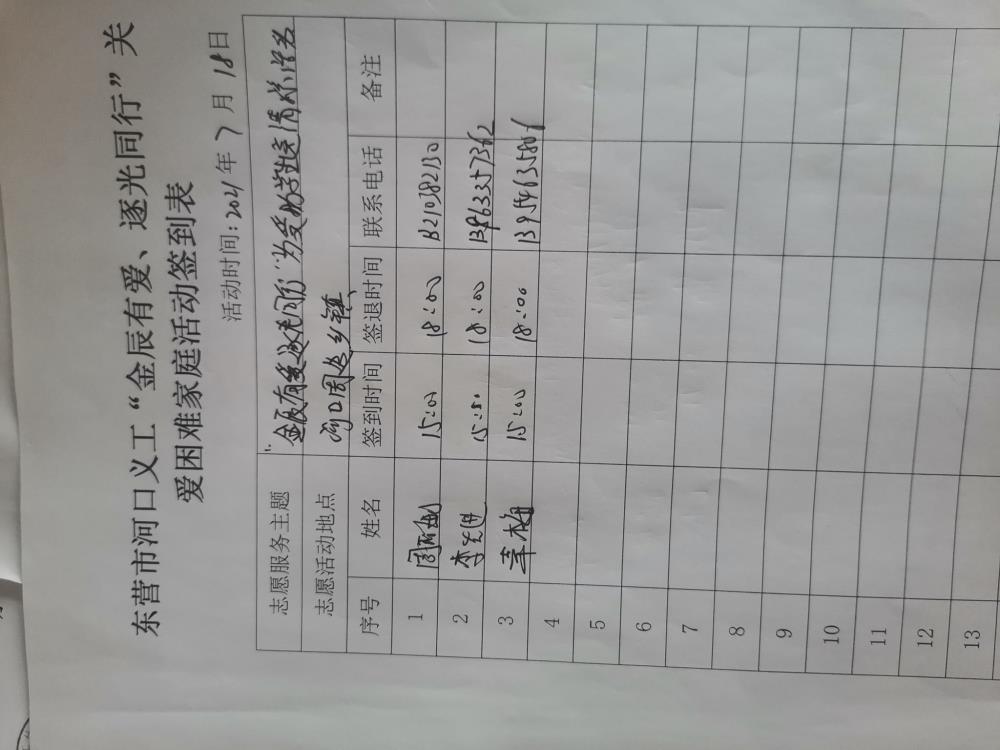 东营市河口义工“金辰有爱、逐光同行”关
爱困难家庭活动签到表
活动时间:2021年7月18日
志愿服务主题 “金辰有爱逐光同行”为受助学生送清凉活动
志愿活动地点 河口周边乡镇、
序号 姓名 签到时间 签退时间 联系电话 备注
1 15:00 18:00 13210382130
2 李先进 15:00 18:00 13963357362
3 辛梅 15:00 18:00 13954635806
4
5
6
7
8
9
10
11
12
13